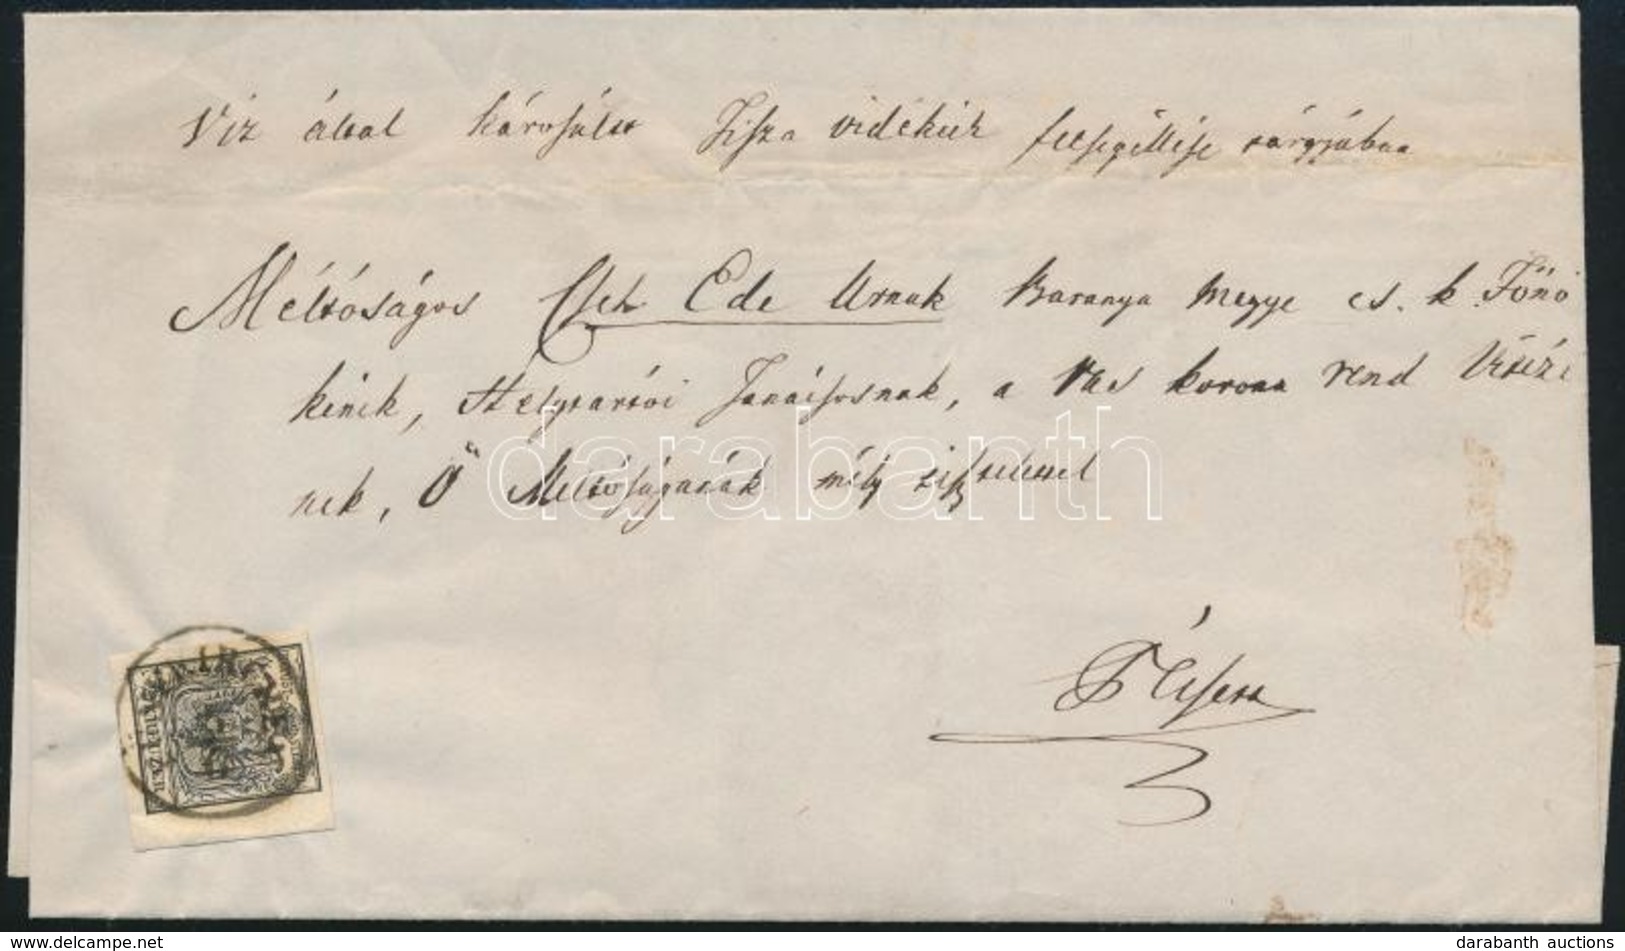 Viz által kárósúlt Tisza vidékiek felsegéllése tárgyjában
Méltóságos Cseh Ede Urnak Baranya Megye cs. k. Főnö
kének, Helytartói Tanácsosnak, a Vas korona rend Vitézé
nek, Ő Méltóságának mély tisztelettel
darabanth
Pécsett
www.delcampe.net
darabanth auctions